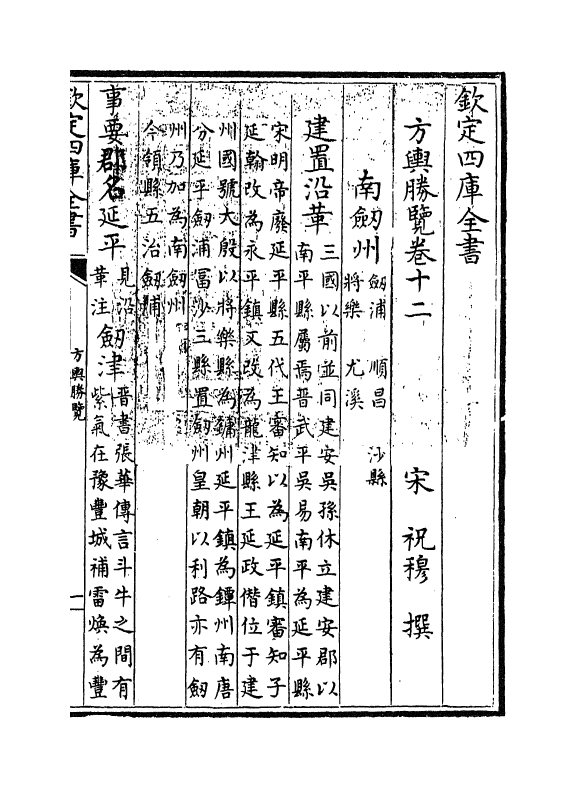 欽定四庫全書
方輿勝覽卷十二
宋 祝穆 撰
南劔州
劔浦 順昌 沙縣
將樂 尤溪
建置沿革
三國以前並同建安吳孫休立建安郡以
南平縣屬焉晉武平吳易南平為延平縣
宋明帝廢延平縣五代王審知以為延平鎮審知子
延翰改為永平鎮又改為龍津縣王延政僭位于建
州國號大殷以將樂縣為鏞州延平鎮為鐔州南唐
分延平劔浦富沙三縣置劔州皇朝以利路亦有劔
州乃加為南劔州
今領縣五治劔浦
事要
郡名
延平
見沿
革注
劔津
晉書張華傳言斗牛之間有
紫氣在豫豐城補雷煥為豐
欽定四庫全書
方輿勝覽
一